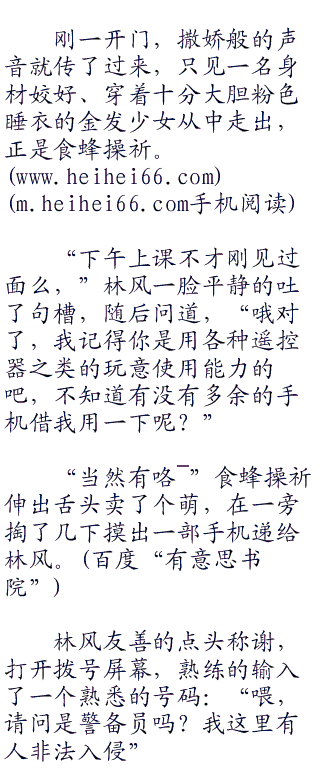 刚一开门，撒娇般的声
音就传了过来，只见一名身
材姣好、穿着十分大胆粉色
睡衣的金发少女从中走出，
正是食蜂操祈。
(www.heihei66.com)
(m.heihei66.com手机阅读)
“下午上课不才刚见过
面么，”林风一脸平静的吐
了句槽，随后问道，“哦对
了，我记得你是用各种遥控
器之类的玩意使用能力的
吧，不知道有没有多余的手
机借我用一下呢？”
“当然有咯¯”食蜂操祈
伸出舌头卖了个萌，在一旁
掏了几下摸出一部手机递给
林风。(百度“有意思书
院”)
林风友善的点头称谢，
打开拨号屏幕，熟练的输入
了一个熟悉的号码：“喂，
请问是警备员吗？我这里有
人非法入侵”